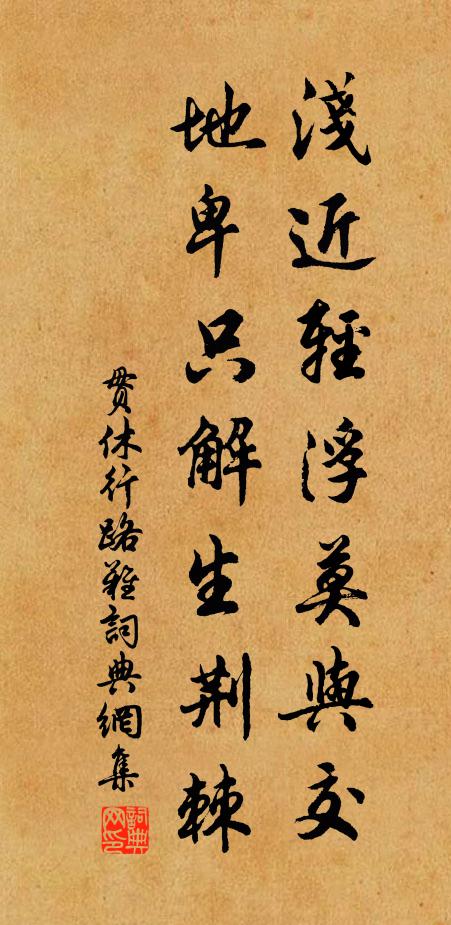 淺近輕浮莫與交
地卑只解生荆棘
貫休行路難詞典網集
詞典
网印